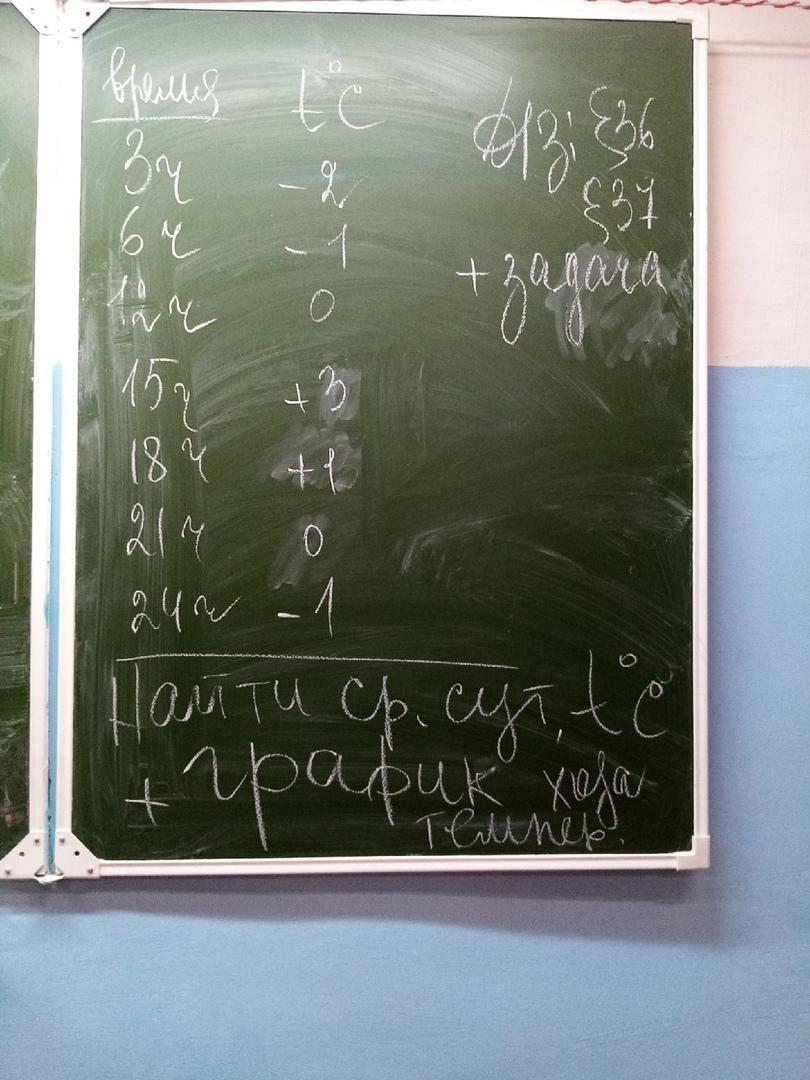 время t°C
3ч -2
6ч -1
12ч 0
15ч +3
18ч +1
21ч 0
24ч -1
Д/з; §36
§37
+ задача
Найти ср. сут, t°C
+ график хода
темпер.